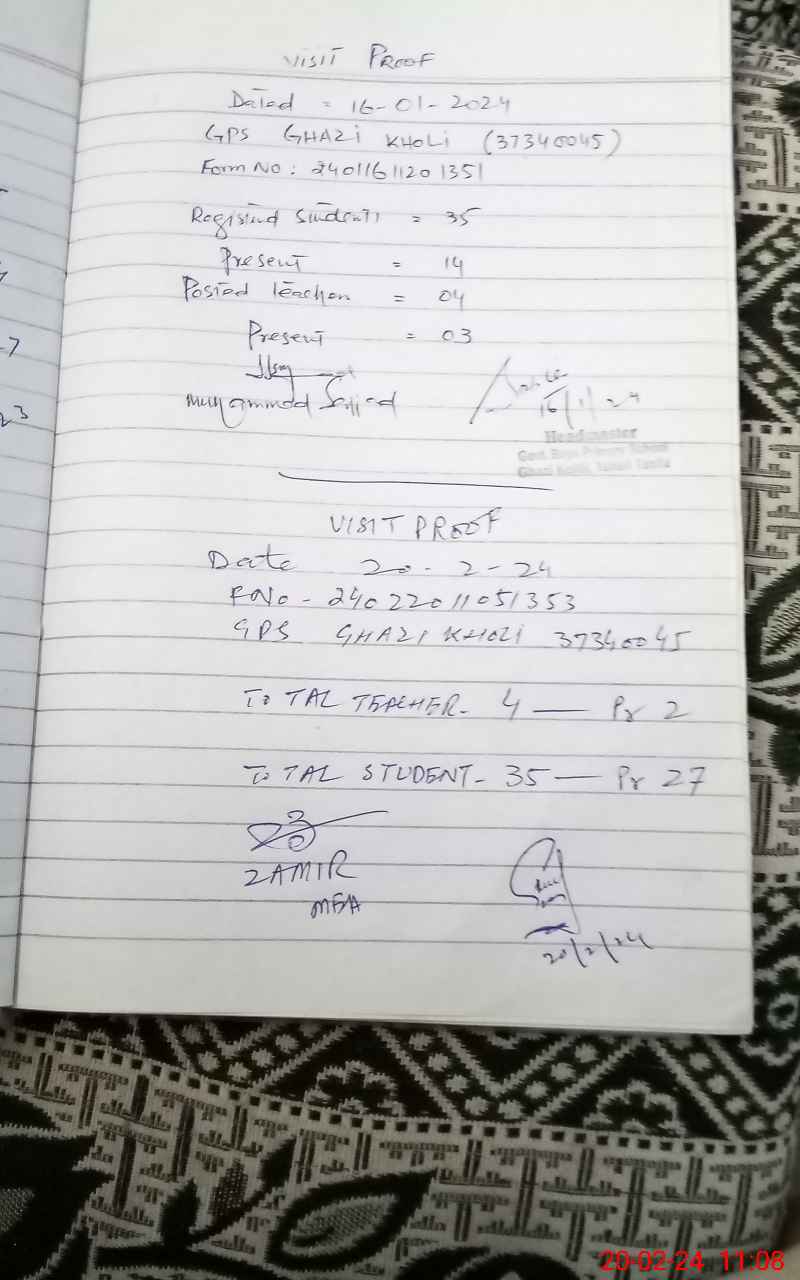 VISIT PROOF
Dated = 16-01-2024
GPS GHAZI KHOLI (37340045)
Form No: 24011611201351
Registerd Students = 35
Present = 14
Posted teacher = 04
Present = 03
Muhammad Sajjad
16/1/24
Headmaster
Govt. Boys Primary School
VISIT PROOF
Date 20-2-24
F.No - 24022011051353
GPS GHAZI KHOLI 37340045
TOTAL TEACHER - 4 — Pr 2
TOTAL STUDENT - 35 — Pr 27
ZAMIR
MEA
20/2/24
20-02-24 11:08